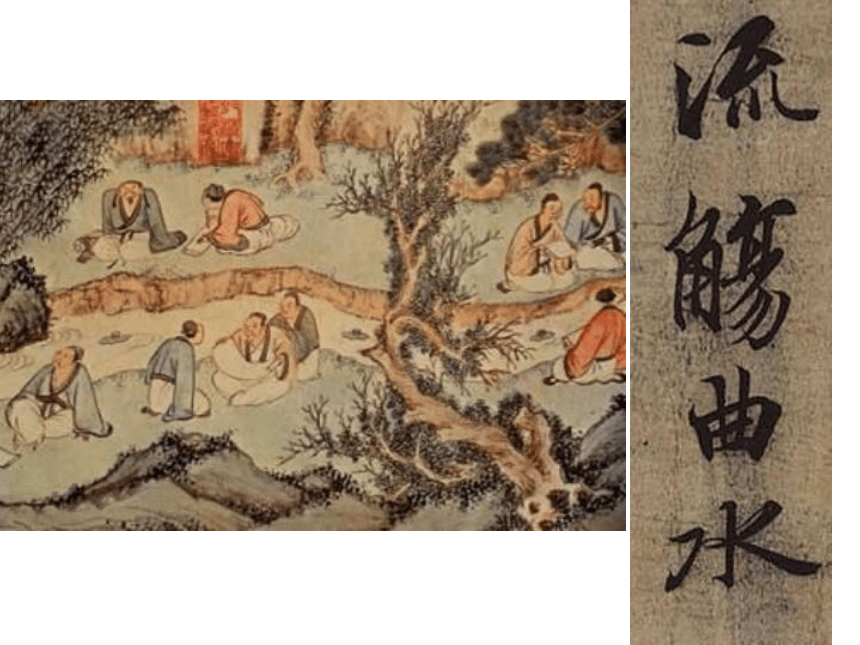 流觴曲水